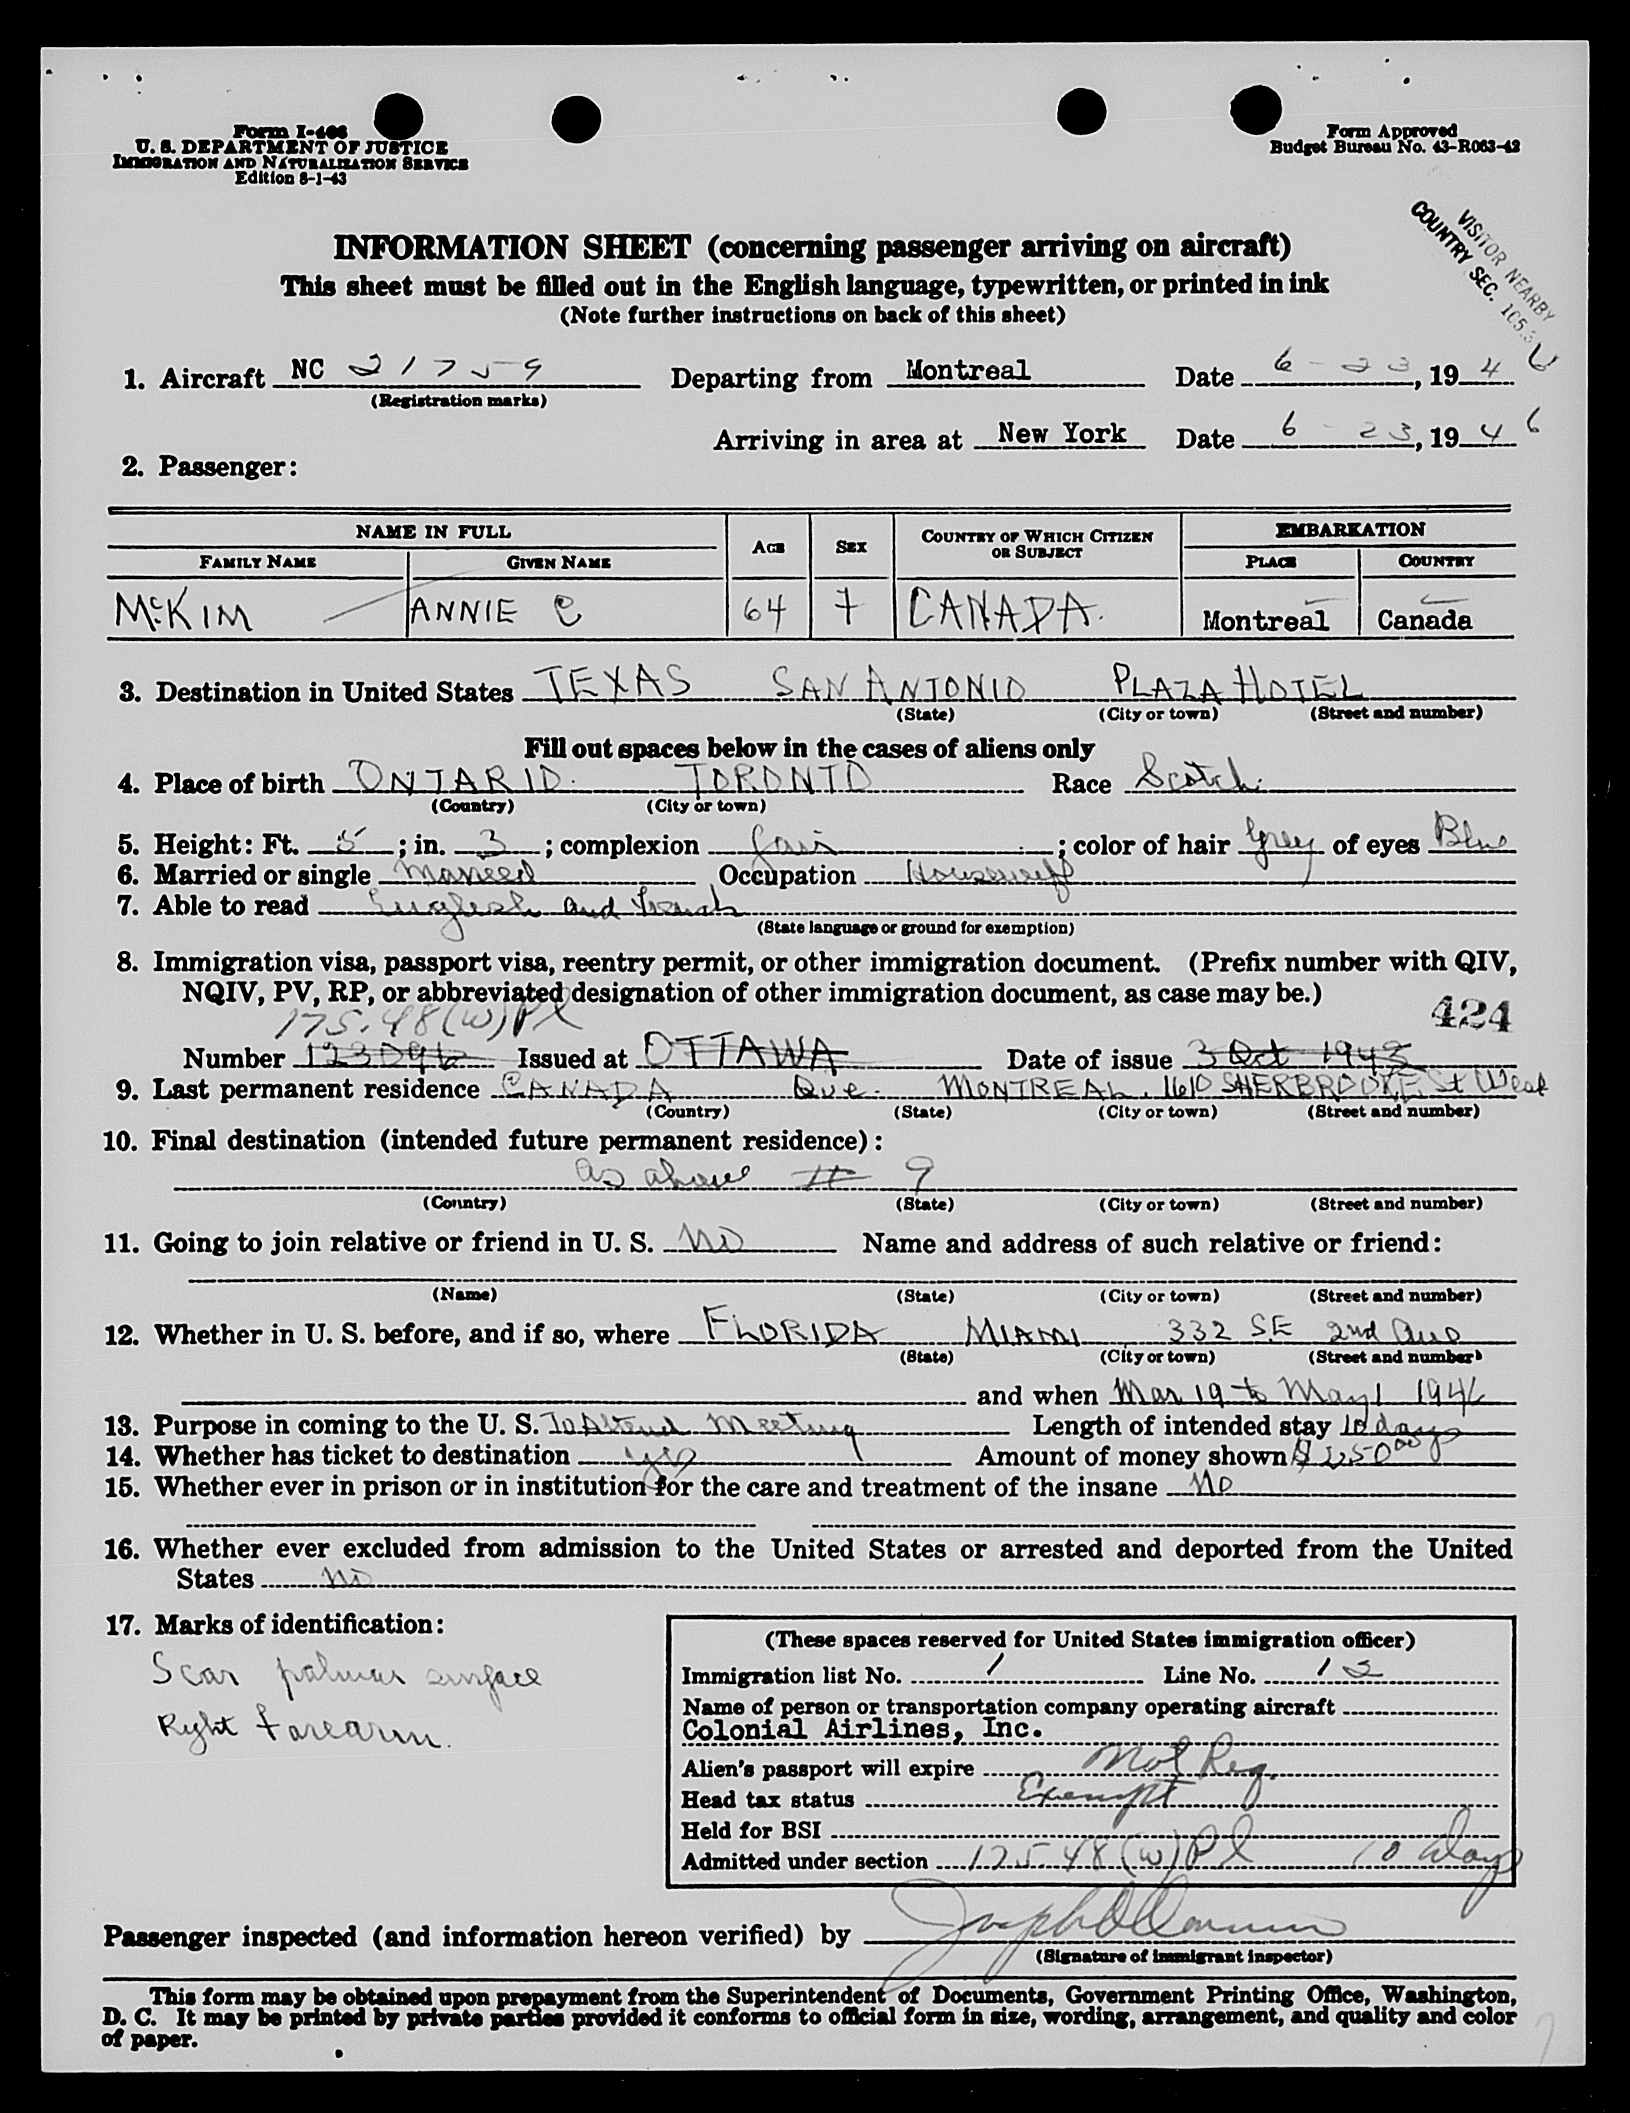 Form I-466
U. S. DEPARTMENT OF JUSTICE
IMMIGRATION AND NATURALIZATION SERVICE
Edition 8-1-43
Form Approved
Budget Bureau No. 43-R063-42
VISITOR NEARBY
COUNTRY SEC.
INFORMATION SHEET (concerning passenger arriving on aircraft)
This sheet must be filled out in the English language, typewritten, or printed in ink
(Note further instructions on back of this sheet)
1. Aircraft NC 21759 Departing from Montreal Date 6-23, 1946
(Registration marks)
Arriving in area at New York Date 6-23, 1946
2. Passenger:
NAME IN FULL AGE SEX COUNTRY OF WHICH CITIZEN OR SUBJECT EMBARKATION
FAMILY NAME GIVEN NAME PLACE COUNTRY
McKIM ANNIE C 64 F CANADA. Montreal Canada
3. Destination in United States TEXAS SAN ANTONIO PLAZA HOTEL
(State) (City or town) (Street and number)
Fill out spaces below in the cases of aliens only
4. Place of birth ONTARIO. TORONTO Race Scotch.
(Country) (City or town)
5. Height: Ft. 5; in. 3; complexion fair; color of hair Grey of eyes Blue
6. Married or single Married Occupation Housewife
7. Able to read English and French
(State language or ground for exemption)
8. Immigration visa, passport visa, reentry permit, or other immigration document. (Prefix number with QIV,
NQIV, PV, RP, or abbreviated designation of other immigration document, as case may be.)
175.48(W)Pl 424
Number 123096 Issued at OTTAWA Date of issue 3 Oct 1943
9. Last permanent residence CANADA Que. MONTREAL. 1610 SHERBROOKE St West
(Country) (State) (City or town) (Street and number)
10. Final destination (intended future permanent residence):
as above # 9
(Country) (State) (City or town) (Street and number)
11. Going to join relative or friend in U. S. NO Name and address of such relative or friend:
(Name) (State) (City or town) (Street and number)
12. Whether in U. S. before, and if so, where FLORIDA MIAMI 332 SE 2nd Ave
(State) (City or town) (Street and number)
and when Mar 19 to May 1 1946
13. Purpose in coming to the U. S. To Attend Meeting Length of intended stay 10 days
14. Whether has ticket to destination yes Amount of money shown $250 00
15. Whether ever in prison or in institution for the care and treatment of the insane No
16. Whether ever excluded from admission to the United States or arrested and deported from the United
States No
17. Marks of identification:
Scar palmar surface
Right forearm.
(These spaces reserved for United States immigration officer)
Immigration list No. 1 Line No. 12
Name of person or transportation company operating aircraft
Colonial Airlines, Inc.
Alien's passport will expire Not Req.
Head tax status Exempt
Held for BSI
Admitted under section 175.48(W)Pl 10 days
Passenger inspected (and information hereon verified) by
(Signature of immigrant inspector)
This form may be obtained upon prepayment from the Superintendent of Documents, Government Printing Office, Washington,
D. C. It may be printed by private parties provided it conforms to official form in size, wording, arrangement, and quality and color
of paper.